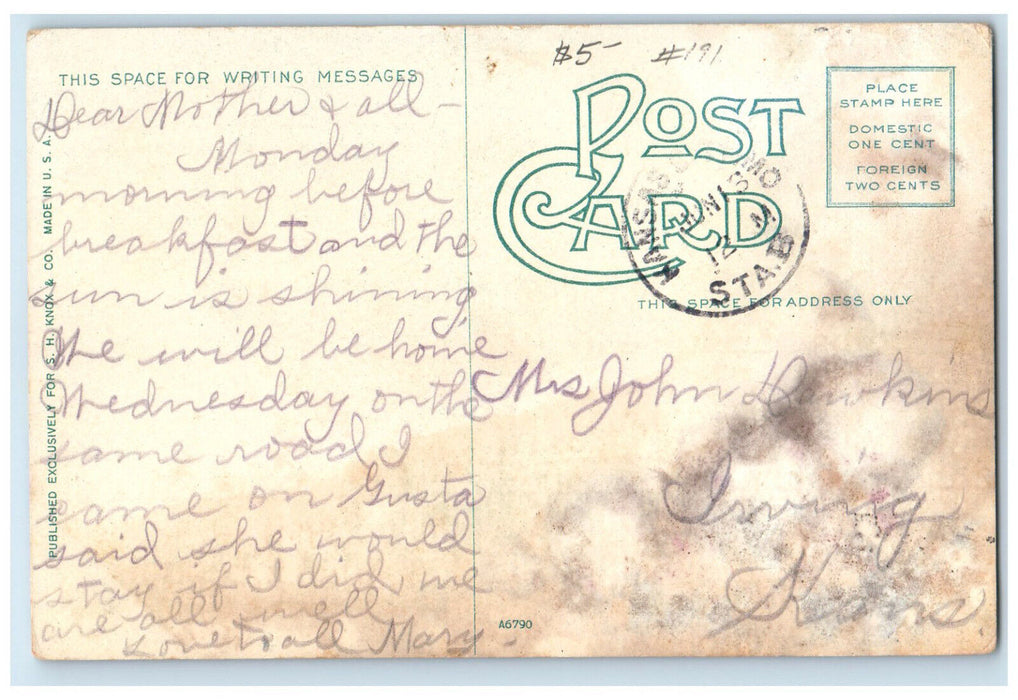 THIS SPACE FOR WRITING MESSAGES
Dear Mother & all —
Monday
morning before
breakfast and the
sun is shining
We will be home
Wednesday on the
same road I
came on Gusta
said she would
stay if I did we
are all well
Love to all Mary
PUBLISHED EXCLUSIVELY FOR S. H. KNOX & CO. MADE IN U. S. A.
$5- #191
POST CARD
PLACE
STAMP HERE
DOMESTIC
ONE CENT
FOREIGN
TWO CENTS
KANSAS MO
12 M
STA. B
THIS SPACE FOR ADDRESS ONLY
Mrs John Hawkins
Irving
Kans.
A6790